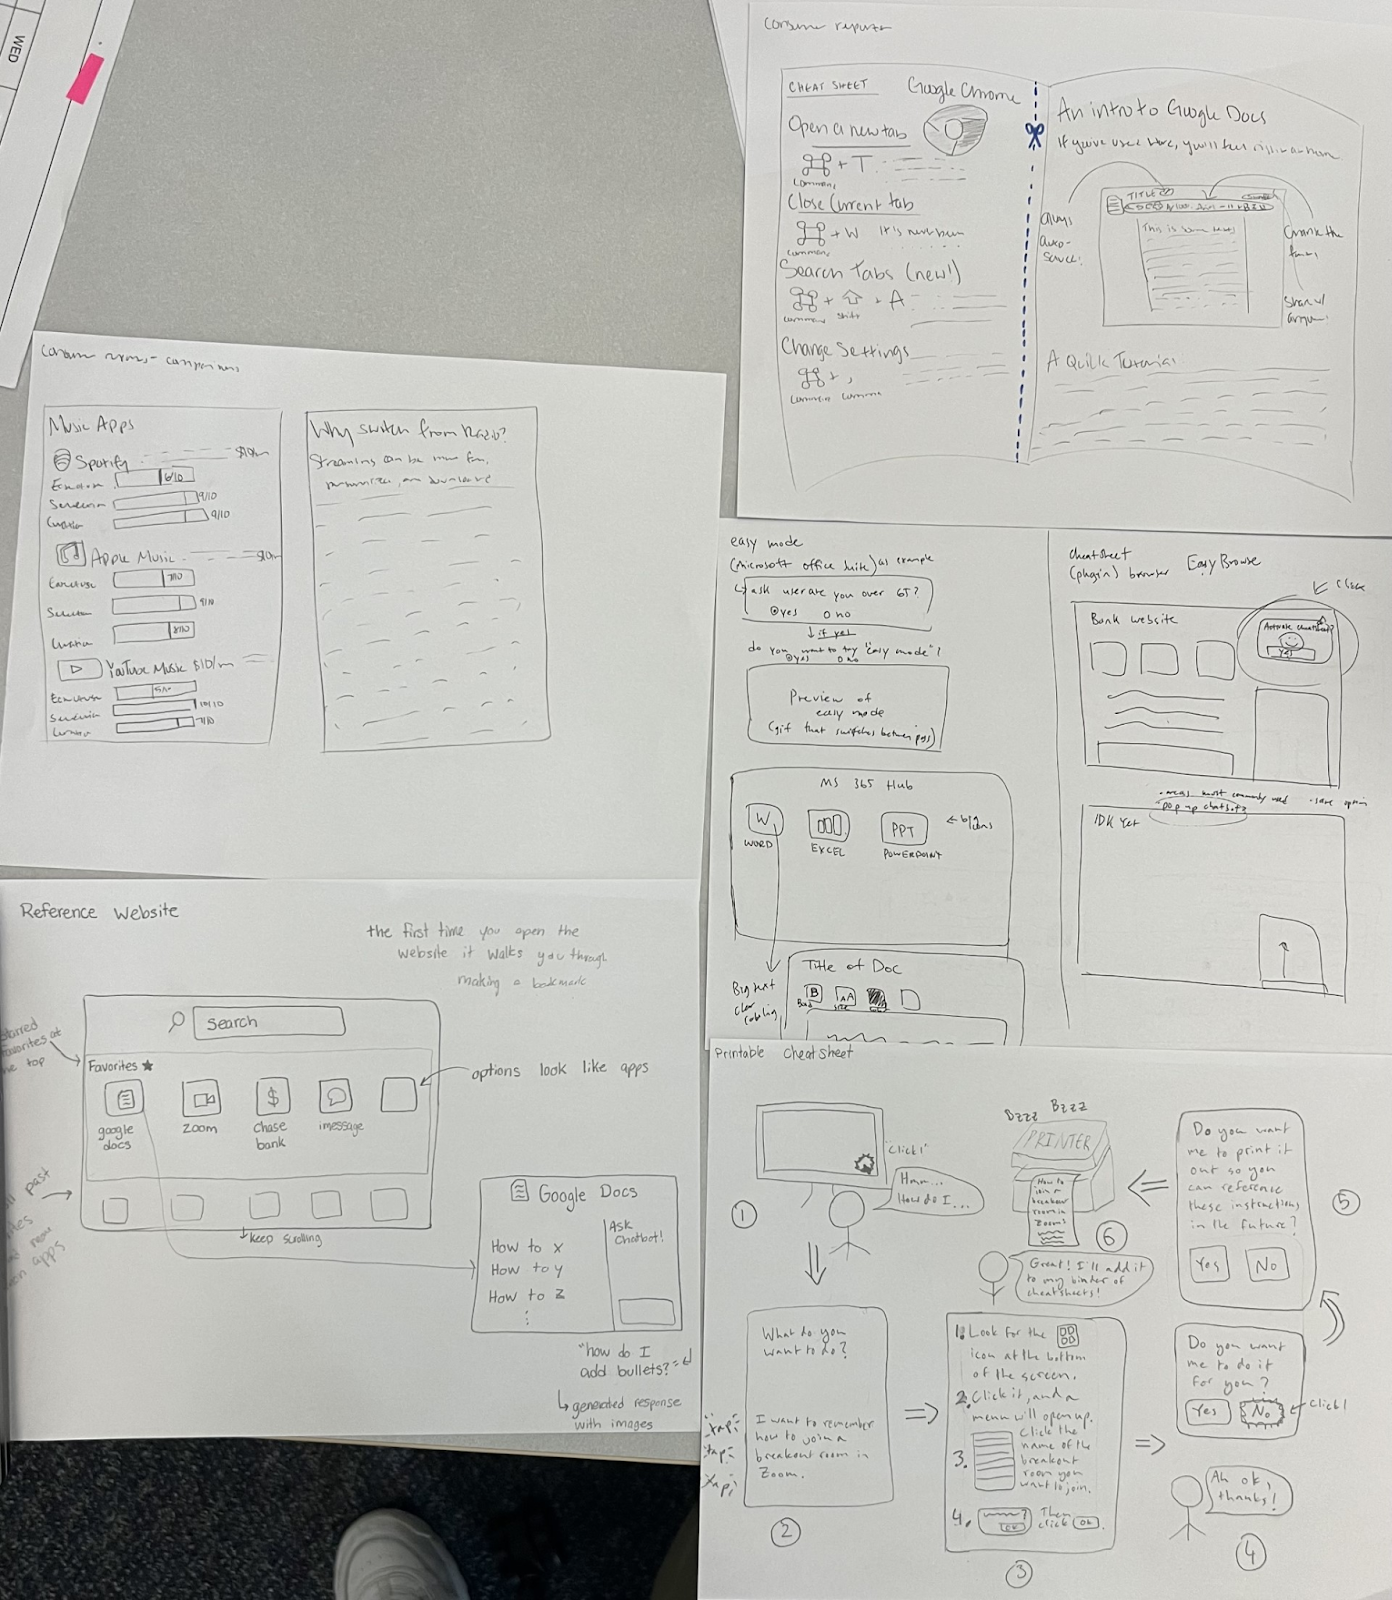 WED
Consumer reports
CHEAT SHEET
Google Chrome
Open a new tab
+ T
Command
Close Current tab
+ W
Command
Search Tabs (new!)
+ + A
Command Shift
Change Settings
+ ,
Command Comma
An intro to Google Docs
If you've used
TITLE
This is some
always
auto-
saved!
Share w/
A Quick Tutorial
Music Apps
Spotify
6/10
Selection
9/10
Curation
9/10
Apple Music
7/10
Selection
9/10
Curation
8/10
YouTube Music $10/m
5/10
10/10
7/10
Why switch from Radio?
Streaming can be more fun,
easy mode
(microsoft office suite) as example
ask user are you over 65?
yes no
if yes
do you want to try "easy mode"?
yes no
Preview of
easy mode
(gif that switches between pgs)
MS 365 Hub
W
WORD
EXCEL
PPT
POWERPOINT
big icons
Title of Doc
Big text
clear
labeling
B
Bold
AA
size
cheatsheet
(plugin) browser
EasyBrowse
Click
Bank website
Activate cheatsheet?
YES
areas most commonly used
save option
pop up chatbot?
IDK Yet
Reference Website
the first time you open the
website it walks you through
making a bookmark
starred
favorites at
the top
Search
Favorites
google
docs
Zoom
$
Chase
bank
imessage
options look like apps
past
apps
keep scrolling
Google Docs
How to X
How to Y
How to Z
Ask
Chatbot!
"how do I
add bullets?"
generated response
with images
Printable Cheatsheet
"Click!"
Hmm...
How do I...
1
What do you
want to do?
I want to remember
how to join a
breakout room in
Zoom.
Tap!
Tap!
Tap!
2
1. Look for the
icon at the bottom
of the screen.
2. Click it, and a
menu will open up.
3. Click the
name of the
breakout
room you
want to join.
4. Then
click OK.
OK
3
Do you want
me to do it
for you?
Yes No
Click!
Ah ok,
thanks!
4
Do you want
me to print it
out so you
can reference
these instructions
in the future?
Yes No
5
Bzzz Bzzz
PRINTER
How to
join a
breakout
room in
Zoom:
6
Great! I'll add it
to my binder of
cheatsheets!